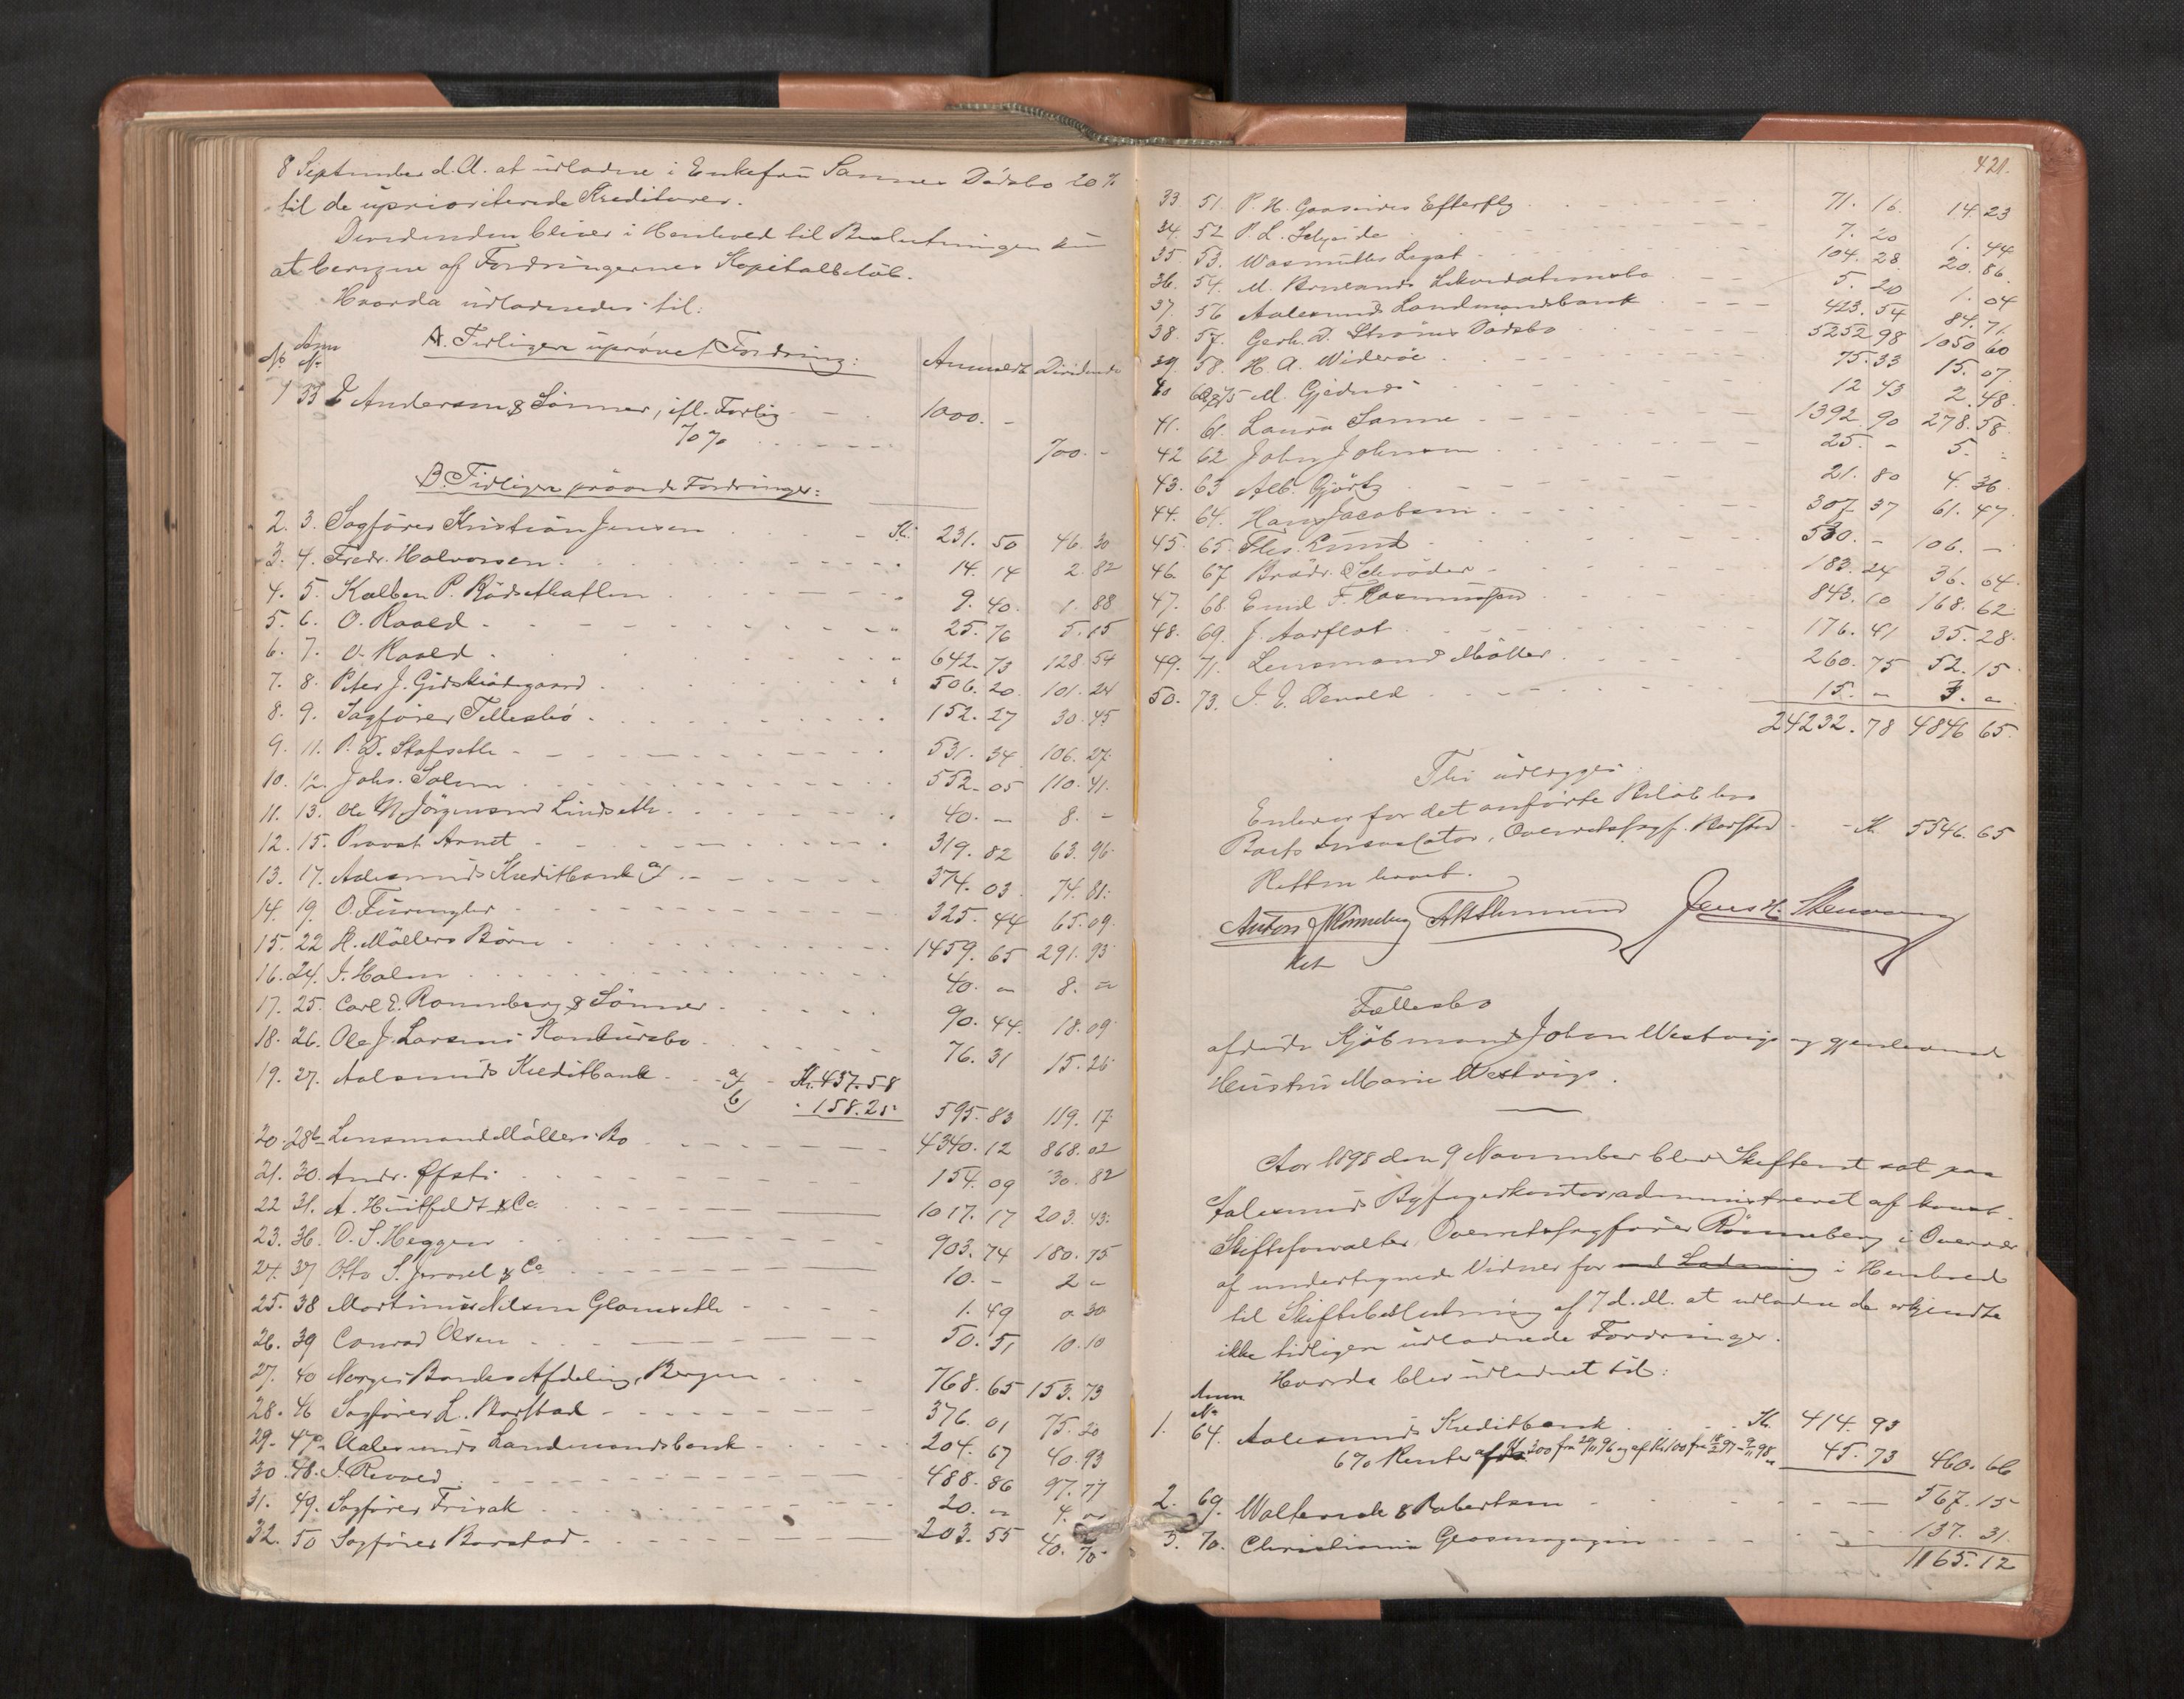 8 September d. A. at udlodne i Enkefru Sannes Dödsbo 20 %
til de uprioriterede Kreditorer.
Dividenden bliver i Henhold til Beslutningen kun
at beregne af Fordringernes Kapitalbelöb.
Hvorda udlodnedes til:
No Anm No A. Tidligere uprövet Fordring: Anmeldt Dividende
1 33 E Andersen & Sönner, ifl. Forlig 1000. -
70 % 700. -
B. Tidligere prövede Fordringer:
2. 3. Sagförer Kristian Jensen Kr. 231. 50 46. 30
3. 4. Fredr. Halvorsen 14. 14 2. 82
4. 5. Kolben P. Rödsethatlen 9. 40. 1. 88
5. 6. O. Roald 25. 76 5. 15
6. 7. O. Roald 642. 73 128. 54
7. 8. Peter J. Gidskeödegaard 506. 20. 101. 24
8. 9. Sagförer Tellesbö 152. 27 30. 45
9. 11. P. D. Stafseth 531. 34 106. 27.
10. 12. Johs. Solem 552. 05 110. 41.
11. 13. Ole N. Jörgensens Lindseth 40. - 8. -
12. 15. Provst Arnet 319. 82 63. 96.
13. 17. Aalesunds Kreditbank a) 374. 03. 74. 81.
14. 19. O. 325. 44 65. 09.
15. 22 H. Möllers Börn 1459. 65 291. 93
16. 24. J. Holm 40. - 8. -
17. 25. Carl E. Rönneberg & Sönner 90. 44. 18. 09
18. 26. Ole J. Larsens Konkursbo 76. 31 15. 26
19. 27. Aalesunds Kreditbank a) Kr. 437. 58
b) " 158. 25 595. 83 119. 17
20. 28b Lensmand Möllers Bo 4340. 12 868. 02
21. 30. Andr. Öfsti 154. 09 30. 82
22 31. A. Huitfeldt & Co. 1017. 17 203. 43.
23. 36. O. S. Heggen 903. 74 180. 75
24. 37 Otto S. & Co. 10. - 2 -
25. 38 Martinus Nilsen Glomseth 1. 49 0. 30
26. 39 Conrad Olsen 50. 51 10. 10
27. 40 Norges Banks Afdeling, Bergen 768. 65 153. 73
28. 46 Sagförer L. Korstad 376. 01 75. 20
29. 47a Aalesunds Landmandsbank 204. 67 40. 93
30. 48. J. Revold 488. 86 97. 77
31. 49. Sagförer Frisak 20. - 4. -
32. 50 Sagförer Barstad 203. 55 40. 70
421.
33. 51. P. H. Gaasnes Efterflg 71. 16. 14. 23
34. 52 P. L. 7. 20 1. 44
35. 53. Wasmuths Legat 104. 28 20. 86.
36. 54. M. Likvidationsbo 5. 20 1. 04
37. 56 Aalesunds Landmandsbank 423. 54 84. 71.
38. 57. Gerh. D. Ströms Dödsbo 5252 98 1050 60
39. 58. H. A. Wideröe 75. 33 15. 07
40 M. Gjednes 12 43 2. 48.
41. 61. Laura Sanne 1392 90 278. 58.
42 62. John Johnsen 25. - 5. -
43. 63 Alb. Gjörtz 21. 80 4. 36
44. 64. Hans Jacobsen 307 37 61. 47.
45. 65. Lund 530. - 106. -
46. 67. Brödr. Schröder 183. 24 36. 64.
47. 68. Emil F. Rasmussen 843. 10 168. 62
48. 69. J. Aarflot 176. 41 35. 28.
49. 71. Lensmand Möller 260. 75 52. 15
50. 73. J. E. Devold 15. - 3. -
24232. 78 4846 65.
Thi udlægges:
Enhver for det anförte Belöb hos
Boets Inkassator, Overretssagf. Korstad - Kr. 5546. 65
Retten hævet.
Anton J Rönneberg Jens H.
kst
Fællesbo
afdöde Kjöbmand Johan Westvigs og gjenlevende
Hustru Marie Westvigs.
Aar 1898 den 9 November blev Skifteret sat paa
Aalesunds Byfogedkontor, administreret af konst.
Skifteforvalter, Overretssagförer Rönneberg i Overvær
af undertegnede Vidner for ved Lodning i Henhold
til Skiftebeslutning af 7 d. M. at udlodne de erkjendte
ikke tidligere udlodnede Fordringer.
Hvorda blev udlodnet til:
Anm No
1. 64. Aalesunds Kreditbank Kr. 414. 93
6 % Renter af Kr. 300 fra 29/10 96 og af Kr. 100 fra 18/2 97 - 9/11 98 45. 73 460. 66
2. 69. Robertsen 567. 15
3. 70. Christiania Glasmagazin 137. 31.
1165. 12